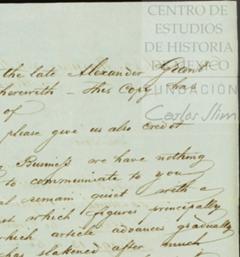 CENTRO DE
ESTUDIOS
DE HISTORIA
DE MEXICO
FUNDACIÓN
Carlos Slim
the late Alexander Grant
herewith - this Copy has
of
please give us also credit
Business we have nothing
to communicate to you
remain quiet with a
which figures principally
which article advances gradually
has slackened after much